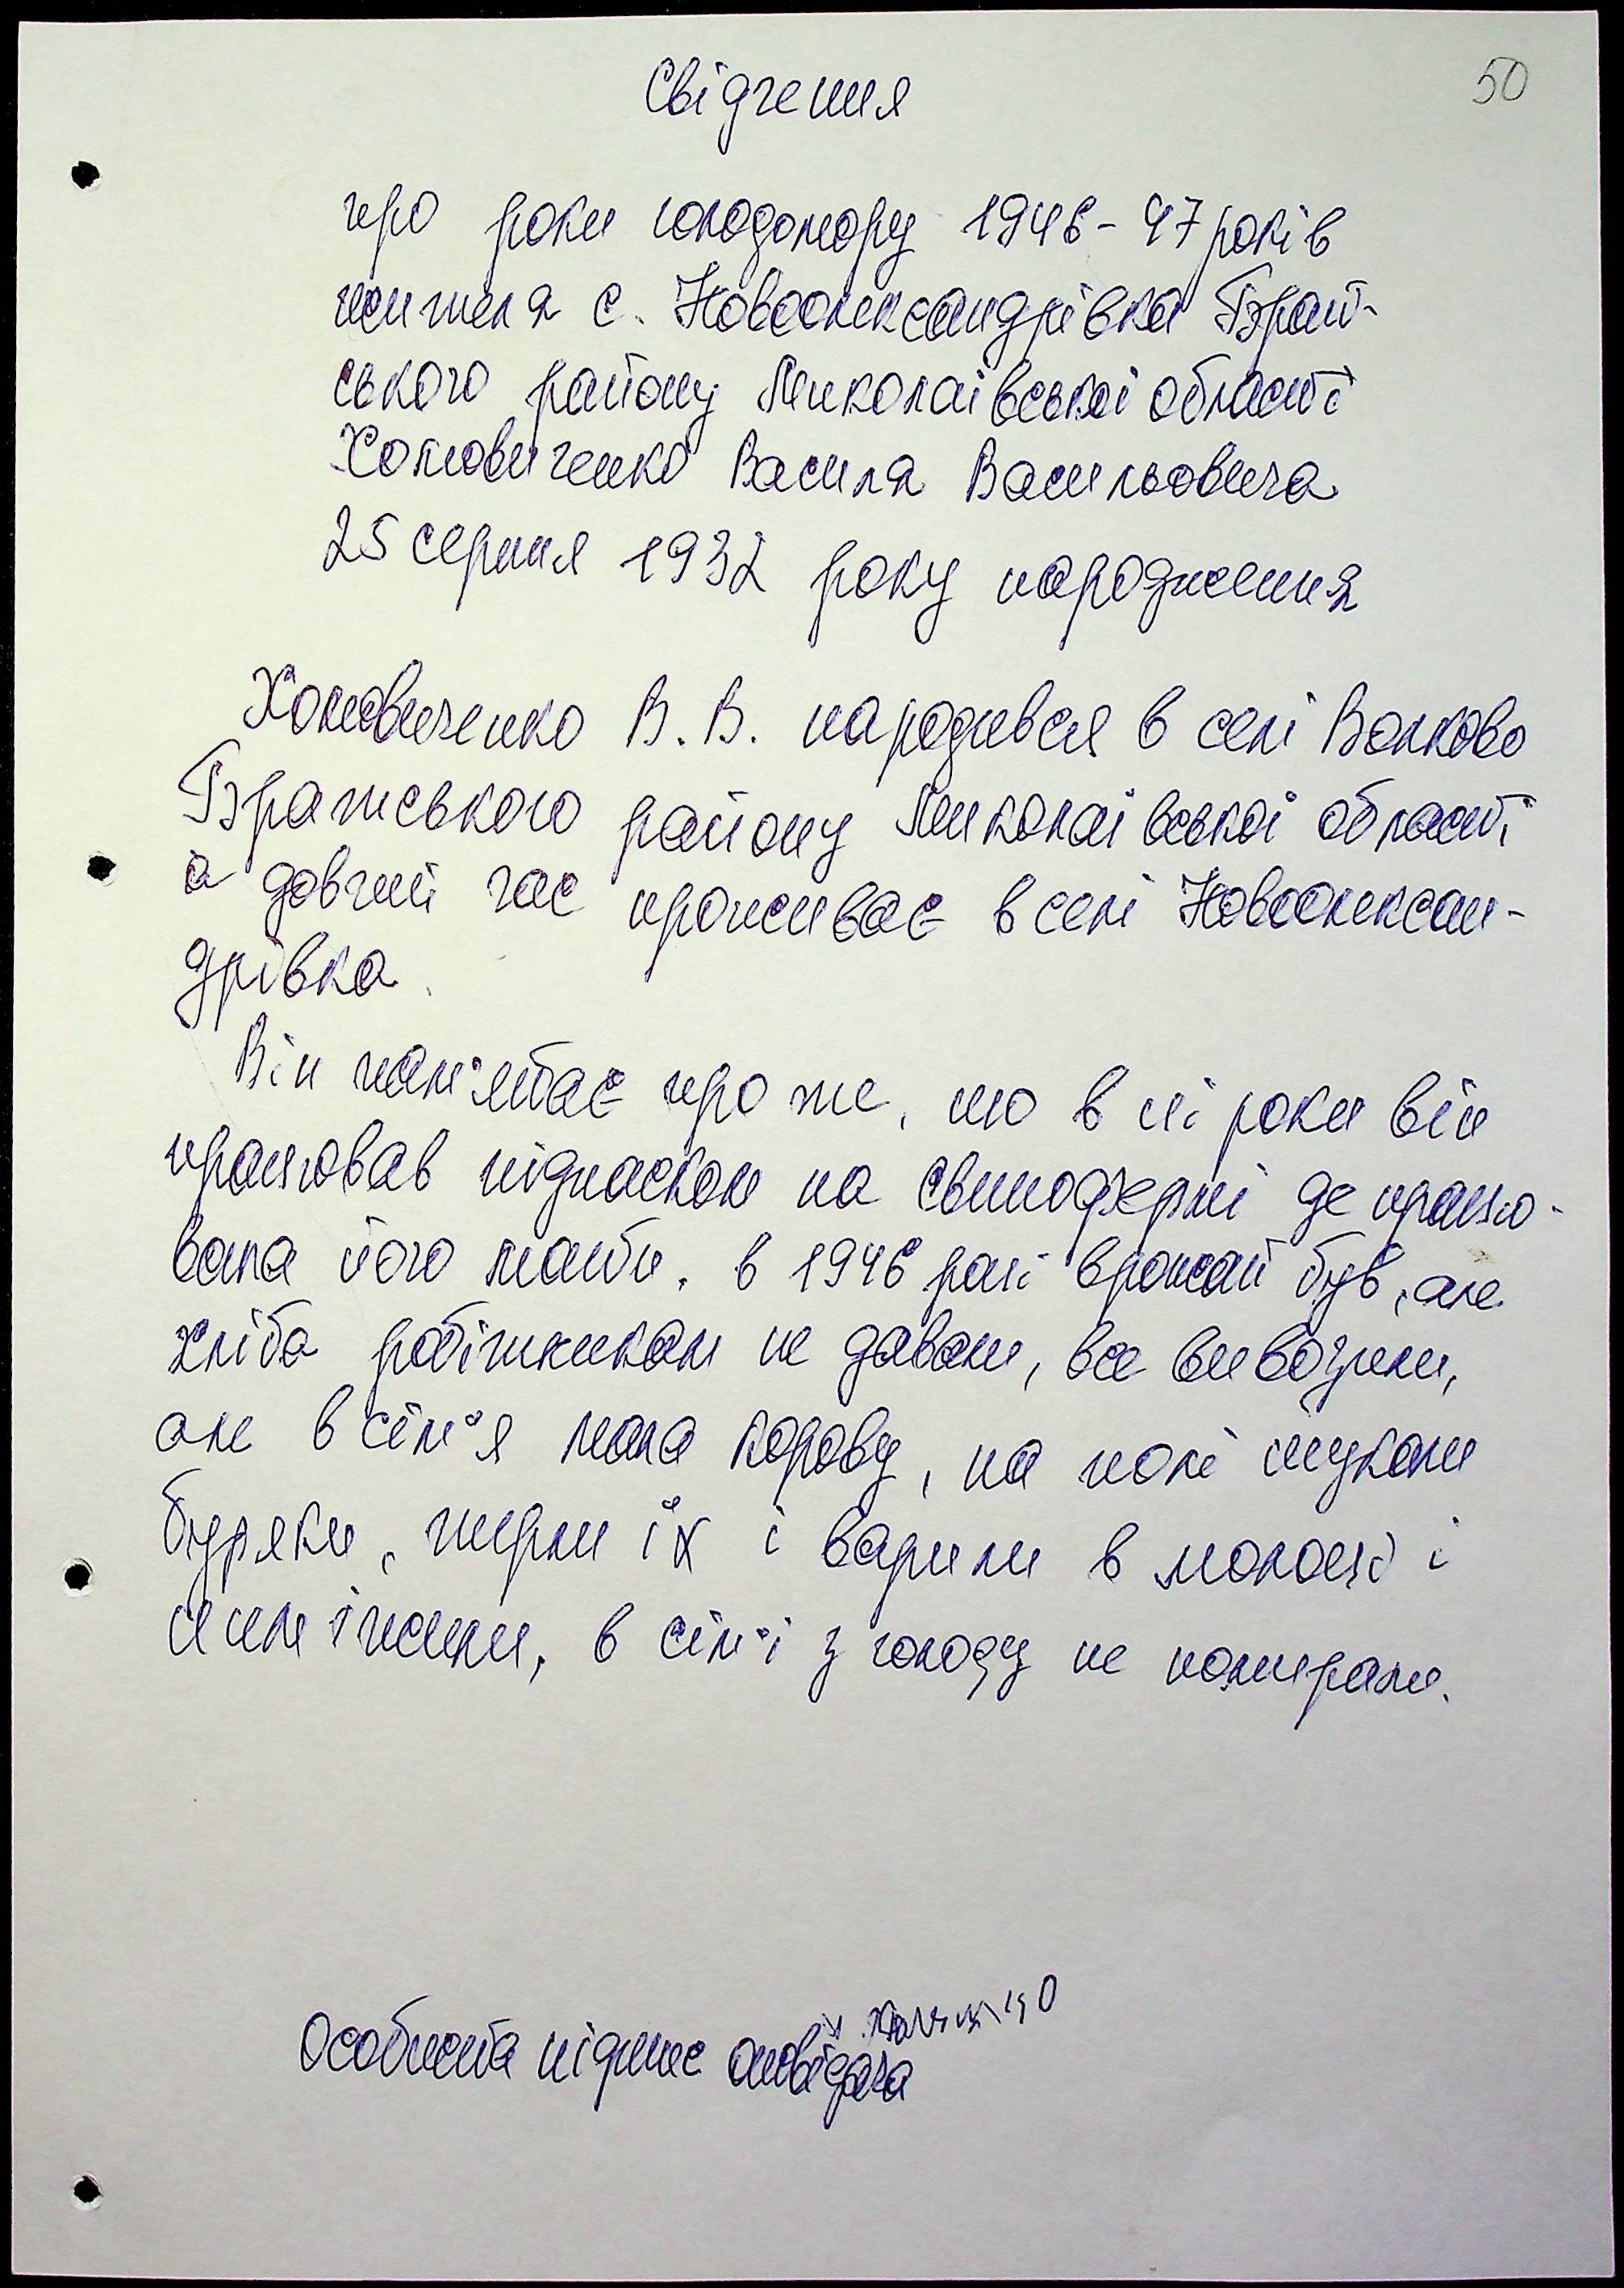 50
Свідчення
про роки голодомору 1946-47 років
жителя с. Новоолександрівка Брат-
ського району Миколаївської області
Хомовиченко Василя Васильовича
25 серпня 1932 року народження
Хомовиченко В. В. народився в селі Волково
Братського району Миколаївської області
а довгий час проживає в селі Новоолексан-
дрівка.
Він пам'ятає про те, що в ці роки він
працював підпаском на свинофермі де працю-
вала його мати. в 1946 році врожай був, але
хліба робітникам не давали, все вивозили,
але в сім'я мала корову, на полі шукали
буряки, терли їх і варили в молоці і
цим і жили, в сім'ї з голоду не помирали.
Особиста підпис оповідача